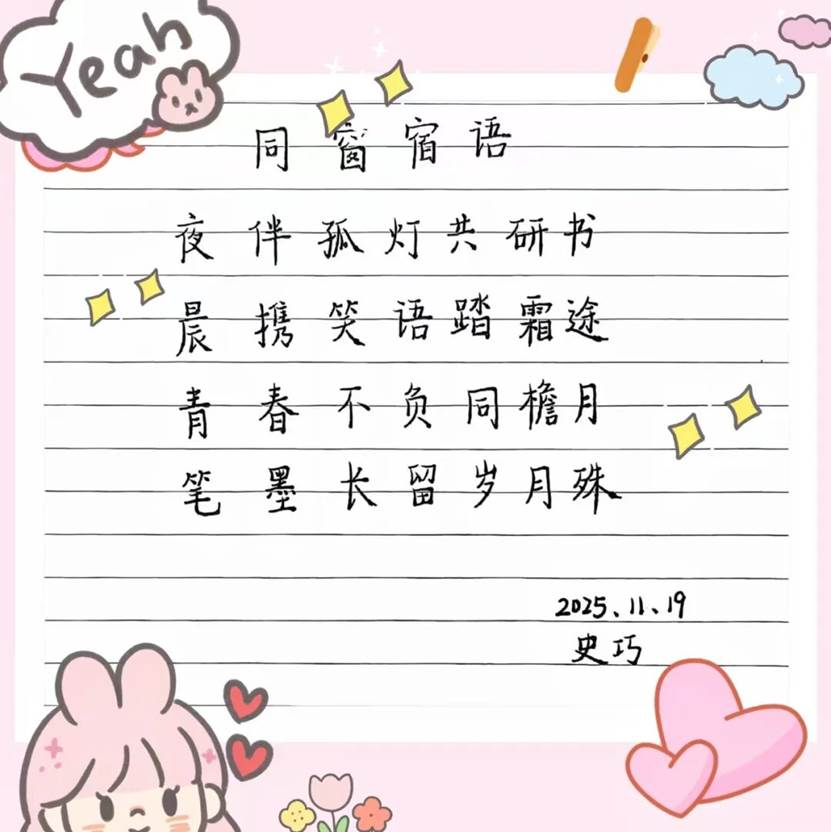 Yeah
同窗宿语
夜伴孤灯共研书
晨携笑语踏霜途
青春不负同檐月
笔墨长留岁月殊
2025、11、19
史巧